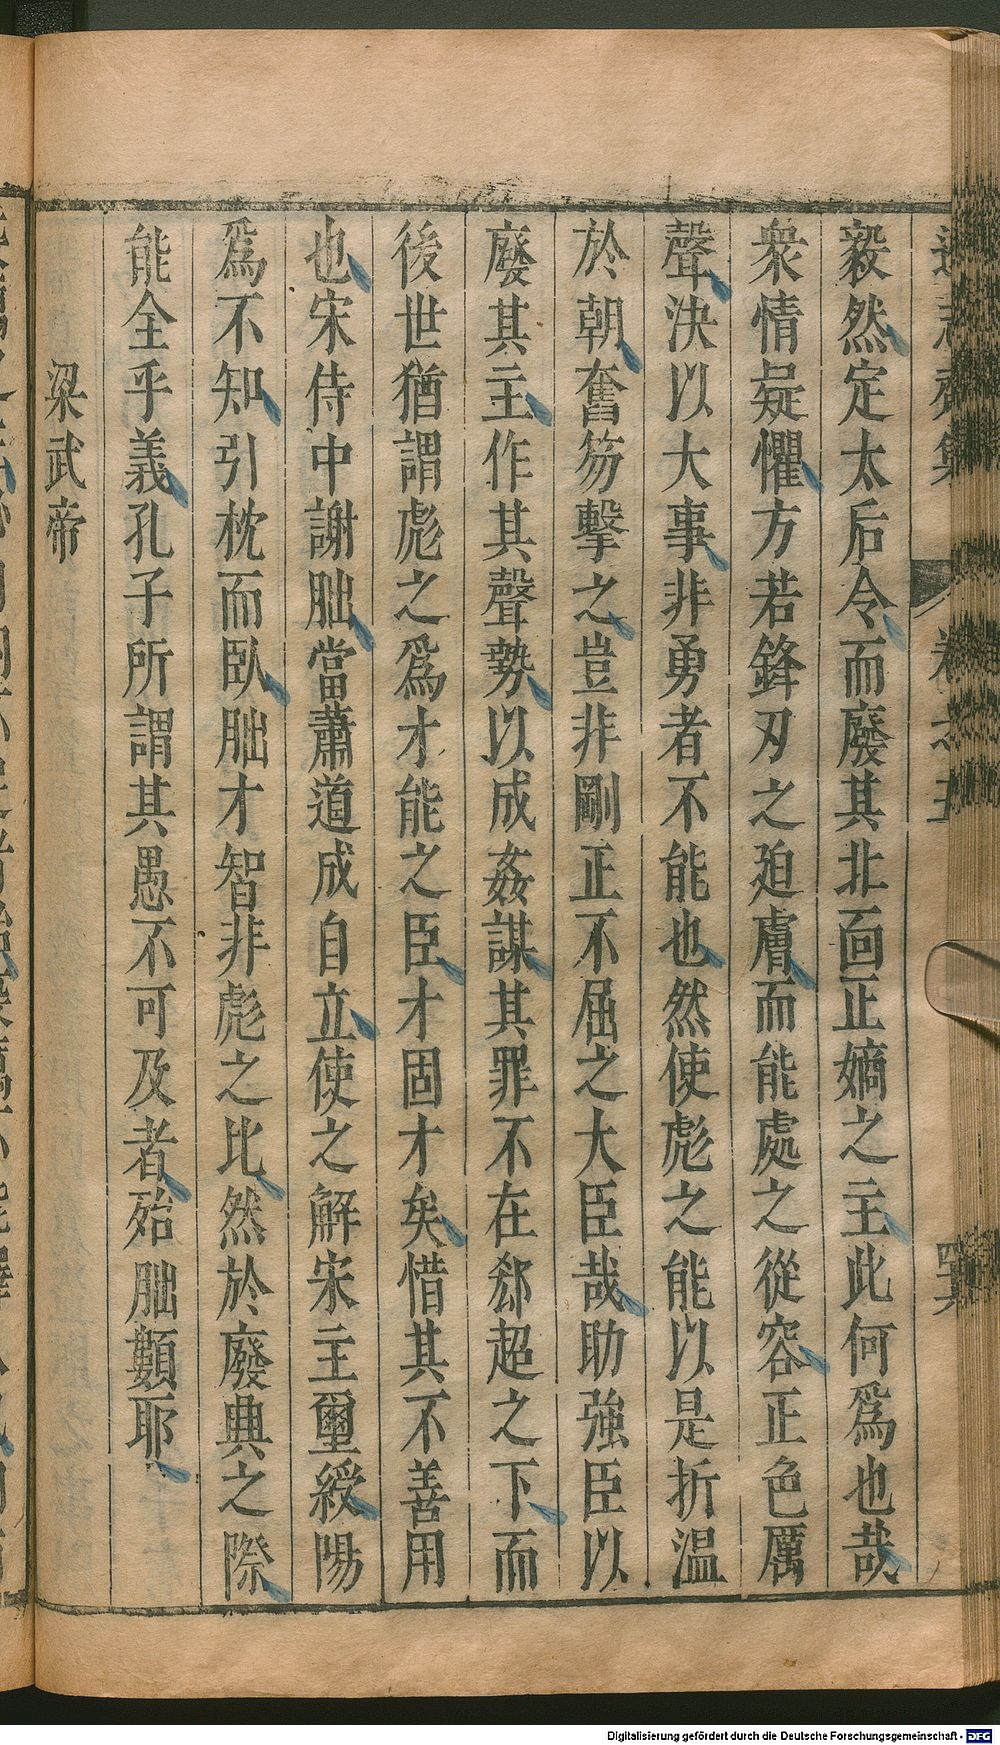 毅然定太后令而廢其北面正嫡之主此何爲也哉
衆情疑懼方若鋒刃之迫膚而能處之從容正色厲
聲決以大事非勇者不能也然使彪之能以是折溫
於朝奮笏擊之豈非剛正不屈之大臣哉助強臣以
廢其主作其聲勢以成姦謀其罪不在郄超之下而
後世猶謂彪之爲才能之臣才固才矣惜其不善用
也宋侍中謝朏當蕭道成自立使之解宋主璽綬陽
爲不知引枕而臥朏才智非彪之比然於廢典之際
能全乎義孔子所謂其愚不可及者殆朏顠耶
梁武帝
Digitalisierung gefördert durch die Deutsche Forschungsgemeinschaft - DFG